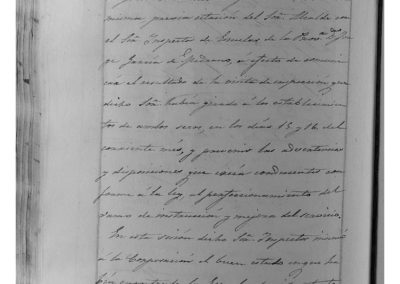 misma previa citacion del Sor. Alcalde con
el Sor. Inspector de Escuelas de la Prova. Dn. Jor
ge Garcia de , a efecto de comuni
car el resultado de la visita de inspeccion que
dicho Sor. habia girado á los establecimien
tos de ambos sexos, en los dias 15 y 16 del
corriente mes, y prevenir las advertencias
y disposiciones que creia conducentes con
forme á la Ley, al perfeccionamiento del
ramo de instruccion y mejora del servicio.
En esta sesion dicho Sor. Inspector
á la Corporacion el buen estado en que ha